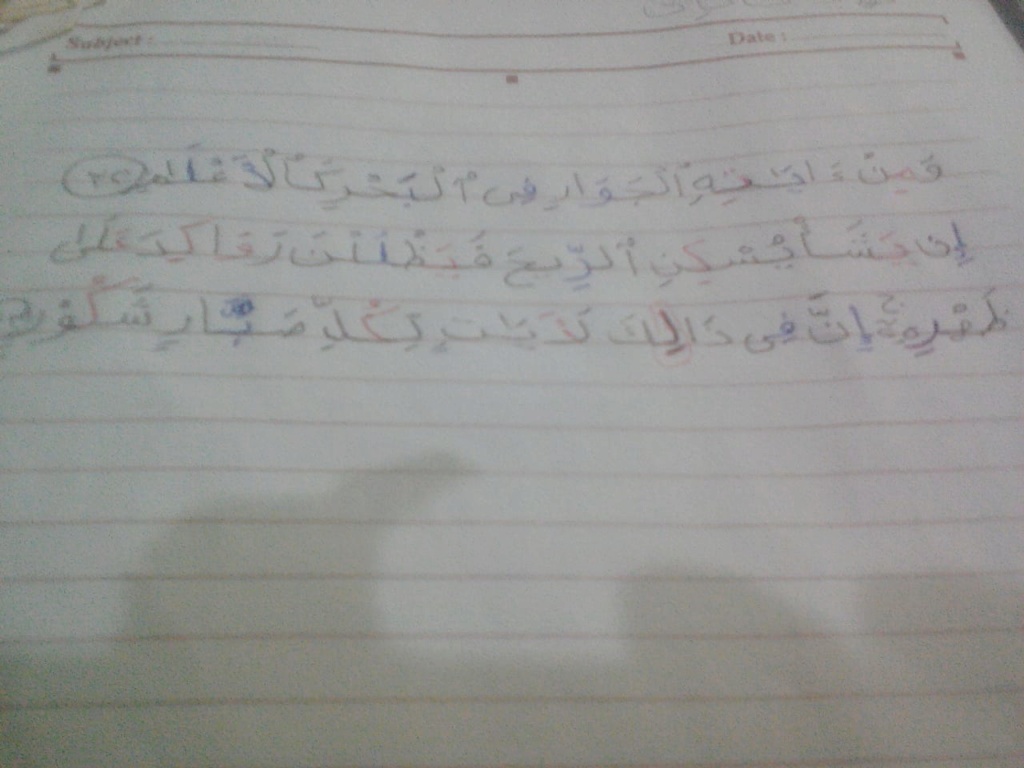 Subject :
Date :
وَمِنْ ءَايَٰتِهِ ٱلْجَوَارِ فِى ٱلْبَحْرِ كَٱلْأَعْلَٰمِ (٣٢)
إِن يَشَأْ يُسْكِنِ ٱلرِّيحَ فَيَظْلَلْنَ رَوَاكِدَ عَلَىٰ
ظَهْرِهِۦٓ ۚ إِنَّ فِى ذَٰلِكَ لَأَيَٰتٍ لِّكُلِّ صَبَّارٍ شَكُورٍ